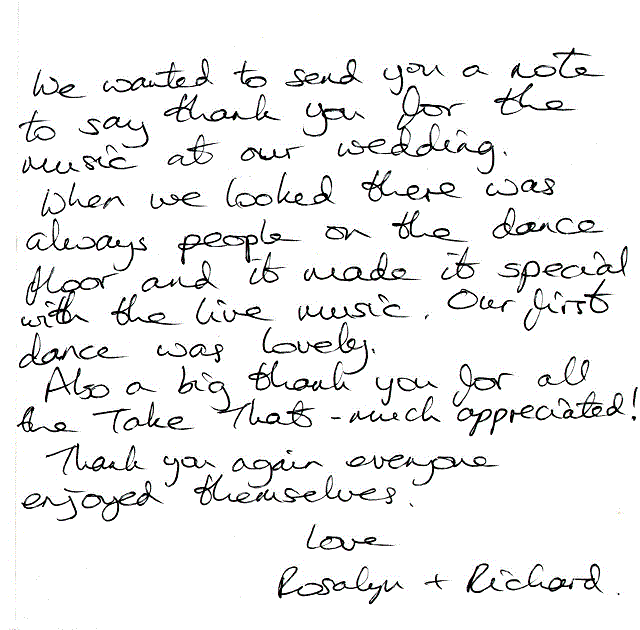 We wanted to send you a note
to say thank you for the
music at our wedding.
When we looked there was
always people on the dance
floor and it made it special
with the live music. Our first
dance was lovely.
Also a big thank you for all
the Take That - much appreciated!
Thank you again everyone
enjoyed themselves.
Love
Rosalyn + Richard.